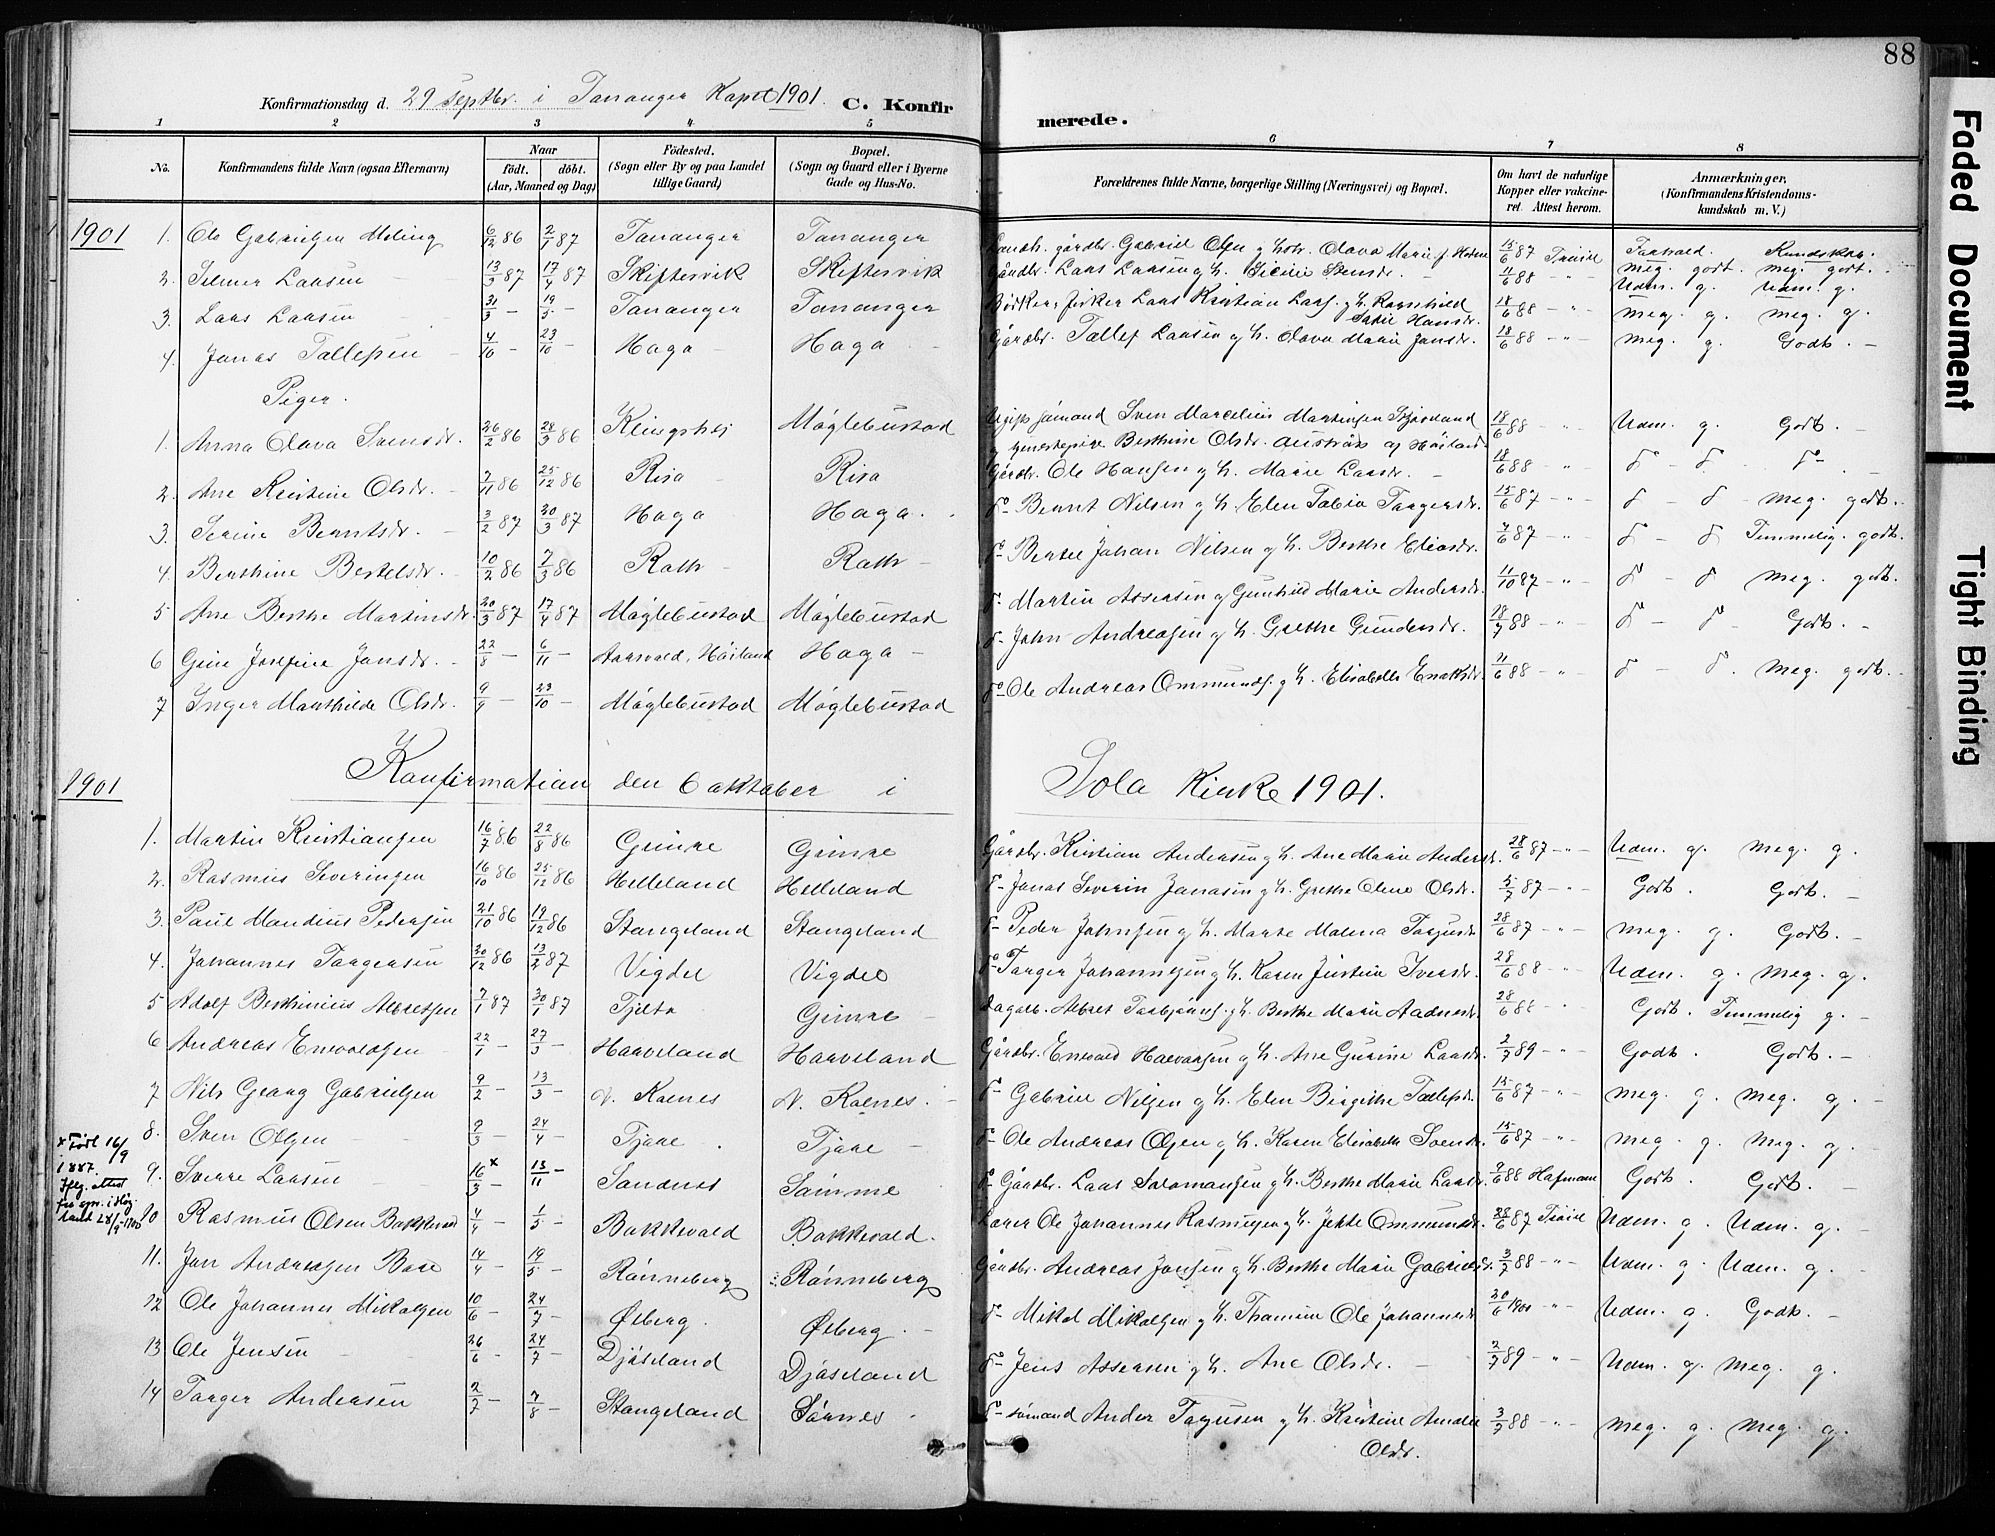 88
Konfirmationsdag d. 29 Septbr. i Tananger Kapel 1901. C. Konfirmerede.
1 2 3 4 5 6 7 8
No. Konfirmandens fulde Navn (ogsaa Efternavn) Naar födt. döbt. (Aar, Maaned og Dag) Födested. (Sogn eller By og paa Landet tillige Gaard) Bopæl. (Sogn og Gaard eller i Byerne Gade og Hus-No. Forældrenes fulde Navne, borgerlige Stilling (Næringsvei) og Bopæl. Om havt de naturlige Kopper eller vakcineret. Attest herom. Anmærkninger, (Konfirmandens Kristendomskundskab m. V.)
1901 1. Ole Gabrielsen Meling 6/12 86 2/1 87 Tananger Tananger gårdbr. Gabriel Olsen g h. Olava Marie 15/6 87 Forhold. Kundskab.
2. Selmer Larsen 13/3 87 17/4 87 Skiftesvik Skiftesvik Gårdbr. Lars Larsen g h. 11/6 88 meg. godt. meg. godt.
3. Lars Larsen 31/3 — 19/5 — Tananger Tananger Bödker, fisker Lars Kristian Lars. g h. Ragnhild Hansdr. 18/6 88 meg. g. meg. g.
4. Jonas Tallefsen 4/10 — 23/10 — Haga Haga Gårdbr. Tallef Larsen g h. Olava Marie Jansdr. 18/6 88 meg. g. Godt.
Piger.
1. Anna Olava Svensdr. 26/2 86 28/3 86 Möglebustad Sven Marcelius Martinsen Berthine Olsdr. 18/6 88 Udm. g. Godt.
2. Ane Kristine Olsdr. 7/11 86 25/12 86 Risa Risa Gårdbr. Ole Hansen g h. Marie Larsdr. 18/6 88
3. Serine Berntsdr. 3/2 87 20/3 87 Haga Haga. Bernt Nilsen g h. Elen Tabia Torgersdr. 15/6 87 meg. godt.
4. Berthine Bertelsdr. 10/2 86 7/3 86 Roth Roth Bertel Johan Nilsen g h. Berthe Eliasdr. 7/6 87 Temmelig. godt.
5 Ane Berthe Martinsdr. 20/3 87 17/4 87 Möglebustad Möglebustad Martin Assersen g Gunhild Marie Andersdr. 11/10 87 meg. godt.
6 Gine Josefine Jansdr. 22/8 — 6/11 — Aarsvold, Höiland Haga John Andreasen g h. Grethe Gundersdr. 18/7 88 Godt.
7 Inger Marthilde Olsdr. 9/9 — 23/10 — Möglebustad Möglebustad Ole Andreas Ommunds. g h. Elisabeth 11/6 88 meg. godt.
1901 Konfirmation den 6 oktober i Sola Kirke 1901.
1. Martin Kristiansen 16/7 86 22/8 86 Gimre Gimre Gårdbr. Kristian Andersen g h. Ane Marie Andersdr. 28/6 87 Udm. g. meg. g.
2. Rasmus Severinsen 16/10 86 25/12 86 Helleland Helleland Jonas Severin Jonasen g h. Grethe Oline Olsdr. 5/7 87 Godt. Godt.
3. Paul Mandius Pedersen 21/10 86 19/12 86 Stangeland Stangeland Peder Johnsen g h. Marte Malena 28/6 87 meg. g. Godt.
4. Johannes Torgersen 20/12 86 13/2 87 Vigdel Vigdel Torger Johannesen g h. Karen Justine Iversdr. 28/6 88 Udm. g. meg. g.
5 Adolf Berthinius Albretsen 7/1 87 30/1 87 Tjelta Gimre Albret Torbjörns. g h. Berthe Marie Aadnesdr. 28/6 88 Godt. Temmelig g.
6 Andreas Envoldsen 22/1 — 27/3 — Harveland Harveland Gårdbr. Envold Halvorsen g h. Ane Gurine Larsdr. 2/7 89 Godt. Godt.
7 Nils Georg Gabrielsen 9/2 — 13/3 — N. Kolnes N. Kolnes. Gabriel Nilsen g h. Elen Birgithe Tallefsdr. 15/6 87 meg. g. meg. g.
8. Sven Olsen 9/3 — 24/4 — Tjåre Tjåre Ole Andreas Olsen g h. Karen Elisabeth Svensdr. 15/6 87 meg. g. meg. g.
x Födt 16/9 1887. Iflg. attest
9. Sverre Larsen 16/3 x 13/11 — Sandnes Sömme Gårdbr. Lars Salamonsen g h. Berthe Marie Larsdr. 9/6 88 Hofmann Godt. Godt.
10 Rasmus Olsen Bakkevold 4/4 — 1/5 — Bakkevold Bakkevold. Lærer Ole Johannes Rasmusen g h. Jekte Ommundsdr. 28/6 87 Udm. g. Udm. g.
11. Jan Andreasen Bore 14/4 — 19/5 — Rönneberg Rönneberg Gårdbr. Andreas Jansen g h. Berthe Marie Gabrielsdr. 3/7 88 Udm. g. Udm. g.
12 Ole Johannes Mikalsen 10/6 — 24/7 — Øiberg. Øiberg. Mikal Mikalsen g h. Ole Johannesdr. 20/6 1901 Udm. g. Godt.
13 Ole Jensen 26/6 — 24/7 — Djöseland Djöseland Jens Assersen g h. Ane Olsdr. 2/7 89 Udm. g. meg. g.
14 Torger Andersen 2/7 — 7/8 — Stangeland Sörnes sömand Ander g h. Kristine Amalie Olsdr. 3/7 88 meg. g. meg. g.
Faded Document
Tight Binding